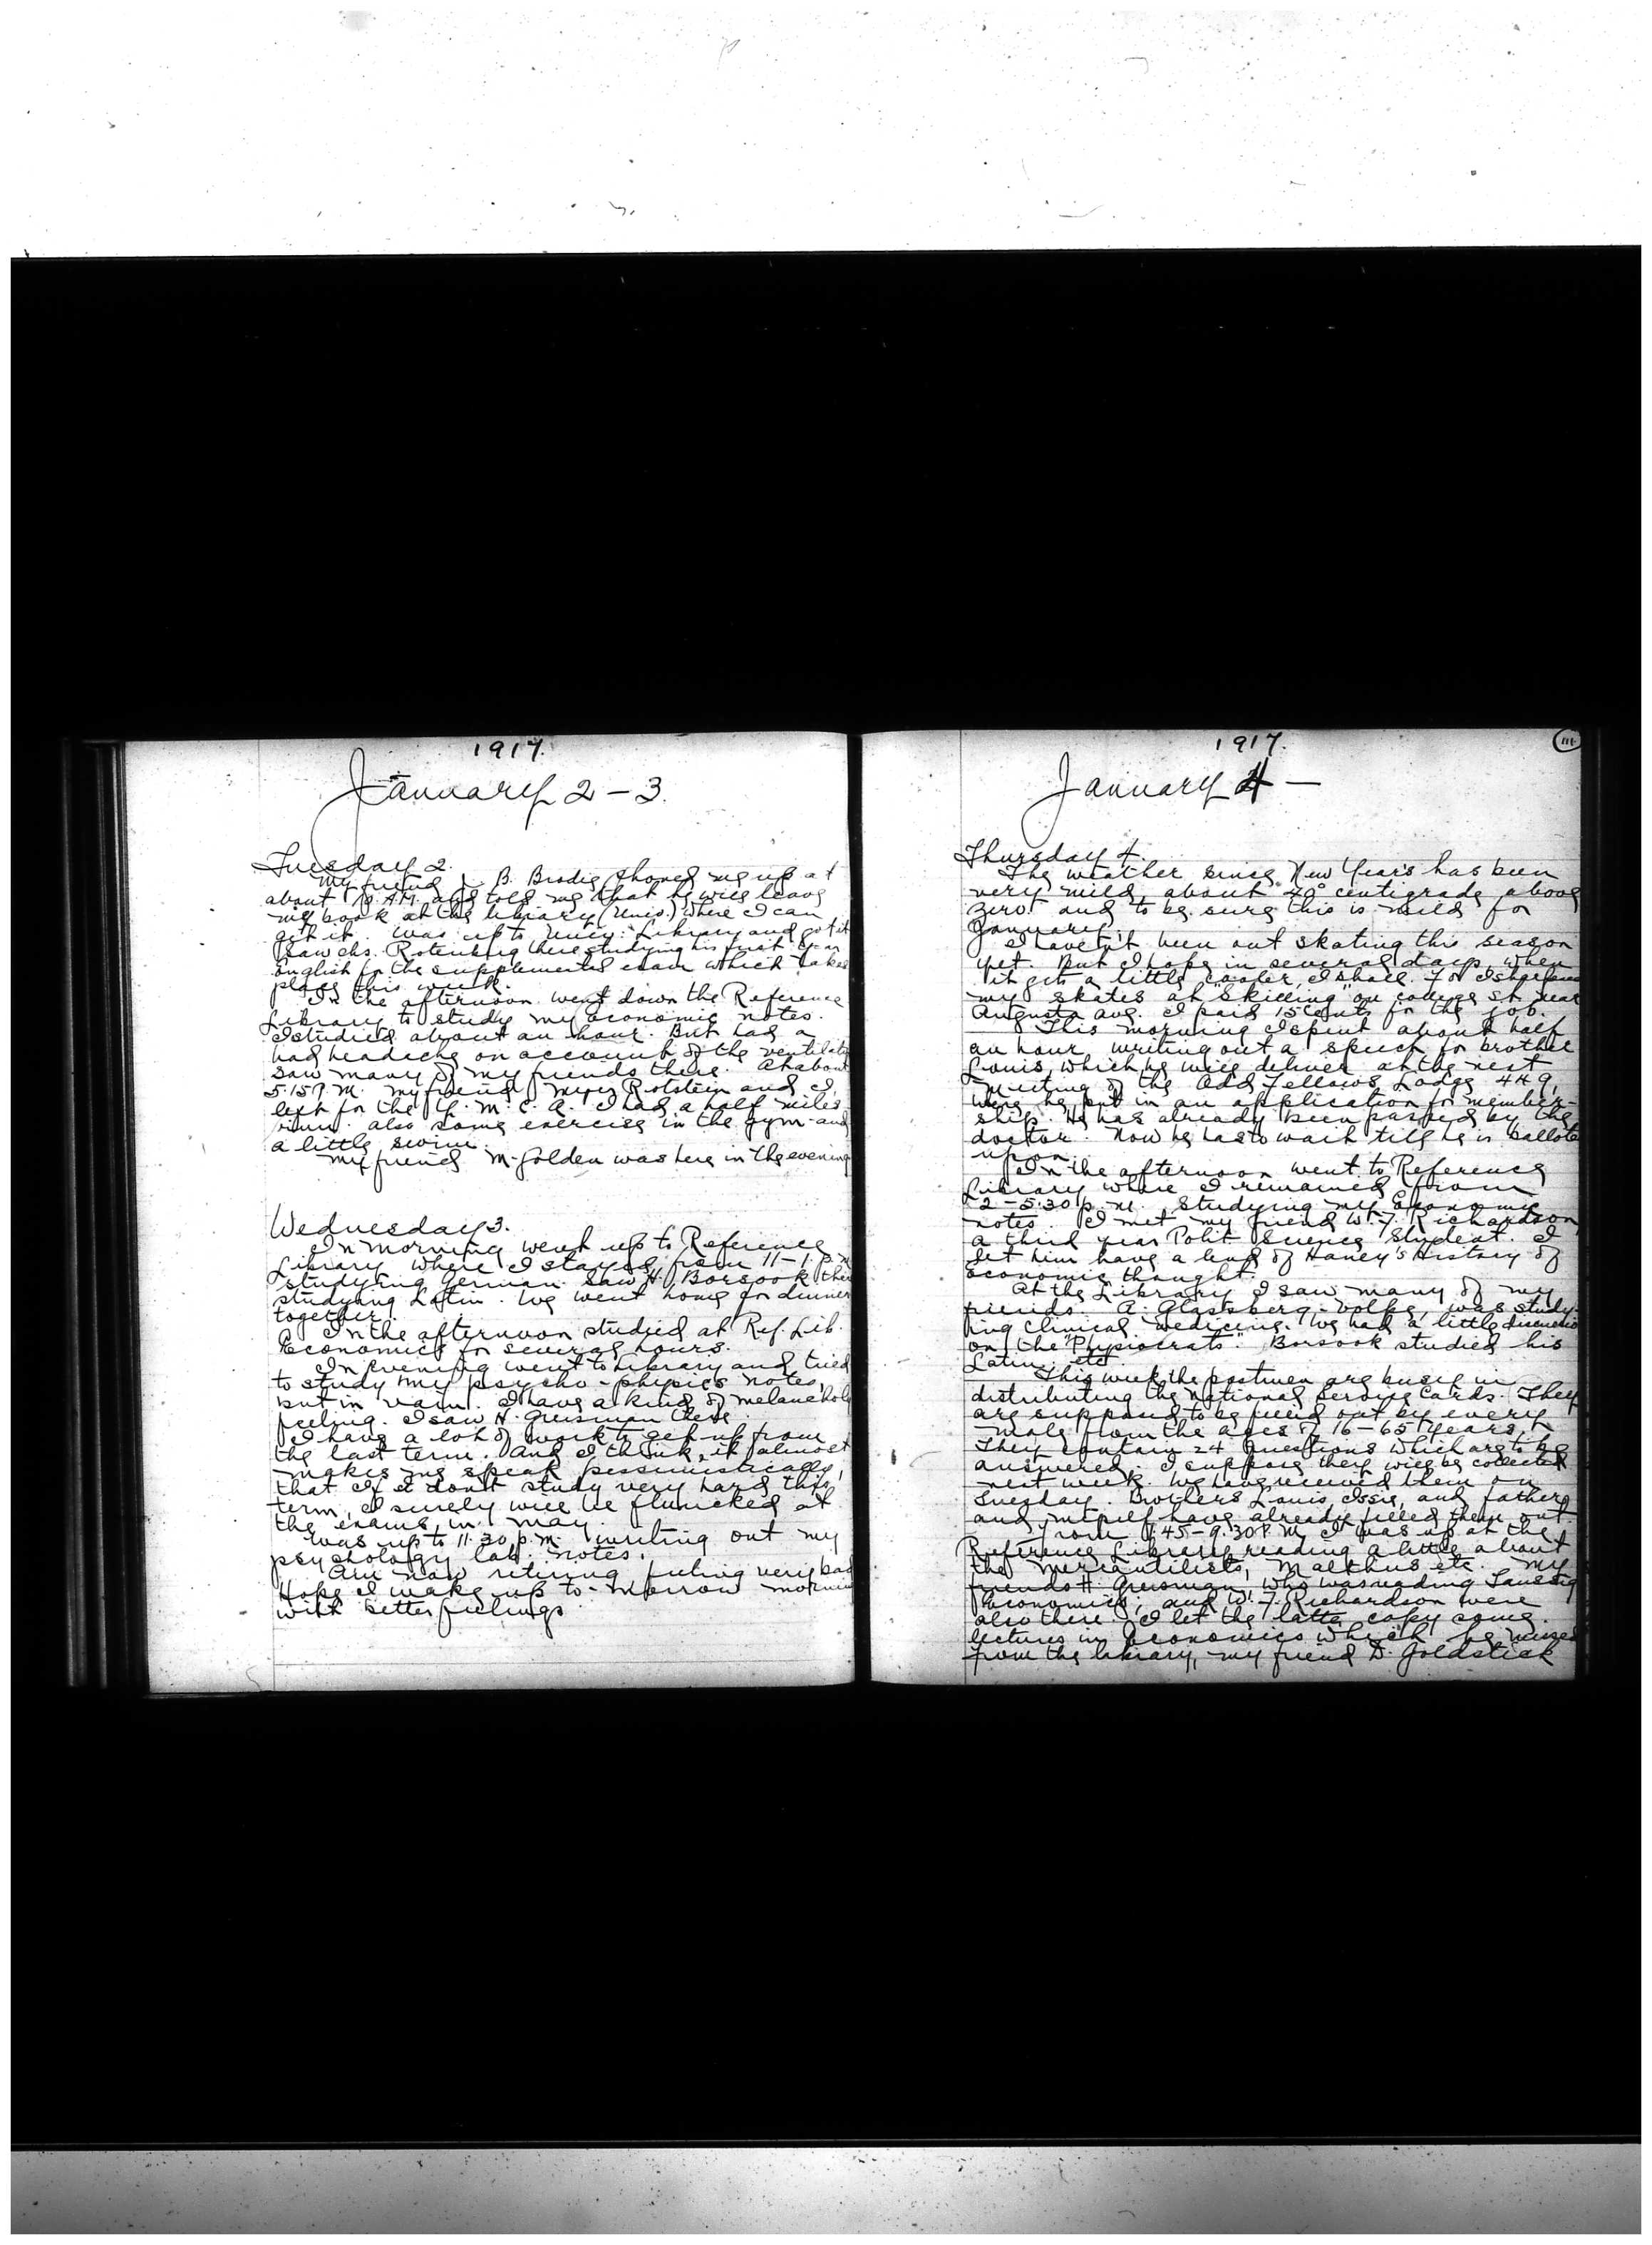 1917.
January 2-3.
Tuesday 2.
My friend B. Brodie phoned me up at
about 10 A.M. and told me that he will leave
my book at the library (Univ.) where I can
get it. Was up to Univ. Library and got it
Saw Chs. Rotenberg there studying his first year
English for the supplemental exam which takes
place this week.
In the afternoon went down the Reference
Library to study my economic notes.
I studied about an hour. But had a
bad headache on account of the ventilati
saw many of my friends there. At about
5.15 P.M. my friend Rotstein and I,
left for the Y.M.C.A. I had a half miles
run. also some exercise in the gym and
a little swim.
My friend M. Golden was here in the evening
Wednesday 3.
In morning went up to Reference
Library where I stayed from 11-1. p.m
studying German. Saw H. Borsook ther
studying Latin. We went home for dinner
together.
In the afternoon studied at Ref. Lib.
Economics for several hours.
In evening went to Library and tried
to study my psycho-physics notes,
but in vain. I have a kind of melanchol
feeling. I saw H. Greisman there.
I have a lot of work to get up from
the last term. And I think, it almost
makes me speak pessimistically,
that if I don't study very hard this
term, I surely will be flunked at
the exams in May.
Was up to 11.30 p.m. writing out my
psychology lab. notes.
Am now retiring feeling very bad
Hope I wake up to-morrow mornin
with better feelings
1917.
January 4 -
Thursday 4.
The weather since New Year's has been
very mild, about 40° centigrade above
zero. and to be sure this is mild for
January.
I haven't been out skating this season
yet. But I hope in several days, when
it gets a little cooler, I shall. For I sharpened
my skates at "Skilling" on College St. near
Augusta Ave. I paid 15 cents for the job.
This morning I spent about half
an hour writing out a speech for brother
Louis, which he will deliver at the next
meeting of the Odd Fellows Lodge 449,
where he put in an application for member-
ship. He has already been passed by the
doctor. Now he has to wait till he is ballote
upon.
In the afternoon went to Reference
Library where I remained from
2-5.30 p.m. studying my Economic
notes. I met my friend W. J. Richardson
a third year Polit. Science Student. I
let him have a lend of Haney's History of
economic thought.
At the Library I saw many of my
friends. A. Glassberg-Volpe, was study-
ing clinical medicine. We had a little discussio
on the "Physiocrats". Borsook studied his
Latin, etc.
This week the postmen are busy in
distributing the National Service Cards. They
are supposed to be filled out by every
male from the ages of 16-65 years.
They contain 24 questions which are to be
answered. I suppose they will be collected
next week. We have received them on
Tuesday. Brothers Louis, Issie, and father
and myself have already filled them out.
From 7.45-9.30 P.M. I was up at the
Reference Library reading a little about
the Mercantilists, Malthus etc. My
friends H. Greisman, who was reading Taussig
Economics; and W. J. Richardson were
also there. I let the latter copy some
lectures in Economics which he missed
From the library, my friend D. Goldstick